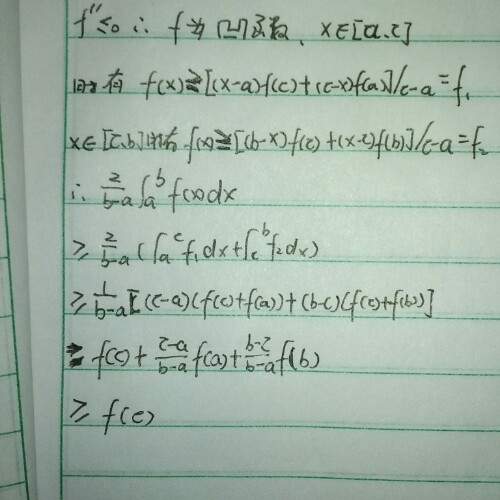 f''≤0 ∴ f为凹函数, x∈[a,c]
时有 f(x)≥[(x-a)f(c)+(c-x)f(a)]/c-a=f₁
x∈[c,b]时有 f(x)≥[(b-x)f(c)+(x-c)f(b)]/c-a=f₂
∴ 2/(b-a) ∫ₐᵇ f(x)dx
≥ 2/(b-a) (∫ₐᶜ f₁dx+∫꜀ᵇ f₂dx)
≥ 1/(b-a) [(c-a)(f(c)+f(a))+(b-c)(f(c)+f(b))]
≥ f(c)+ (c-a)/(b-a) f(a)+ (b-c)/(b-a) f(b)
≥ f(c)